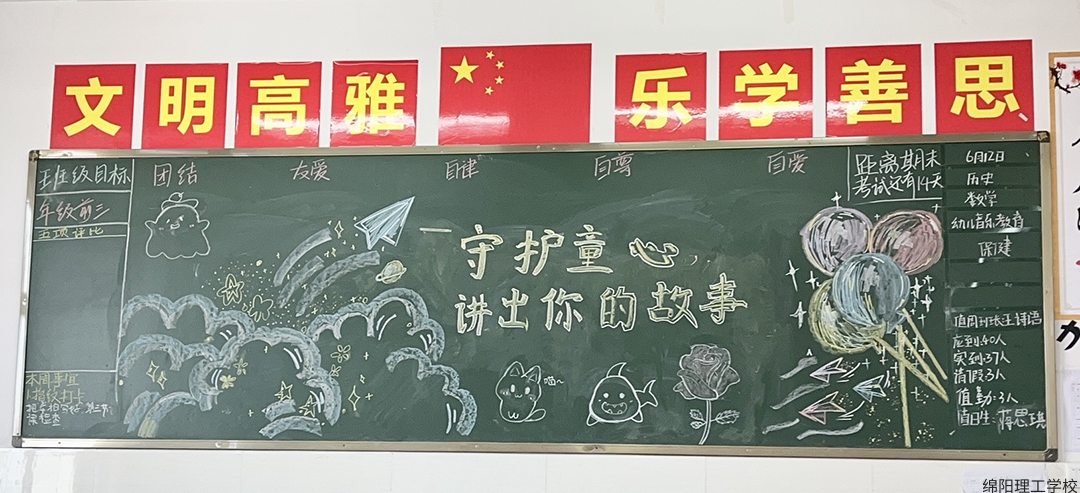 文明高雅 乐学善思
班级目标
年级前三
五项评比
团结 友爱 自律 自尊 自爱
距离期末
考试还有14天
守护童心,
讲出你的故事
6月12日
历史
数学
幼儿音乐教育
保健
应到:40人
实到:37人
请假:3人
值勤:3人
值日生:
本周事宜
绵阳理工学校